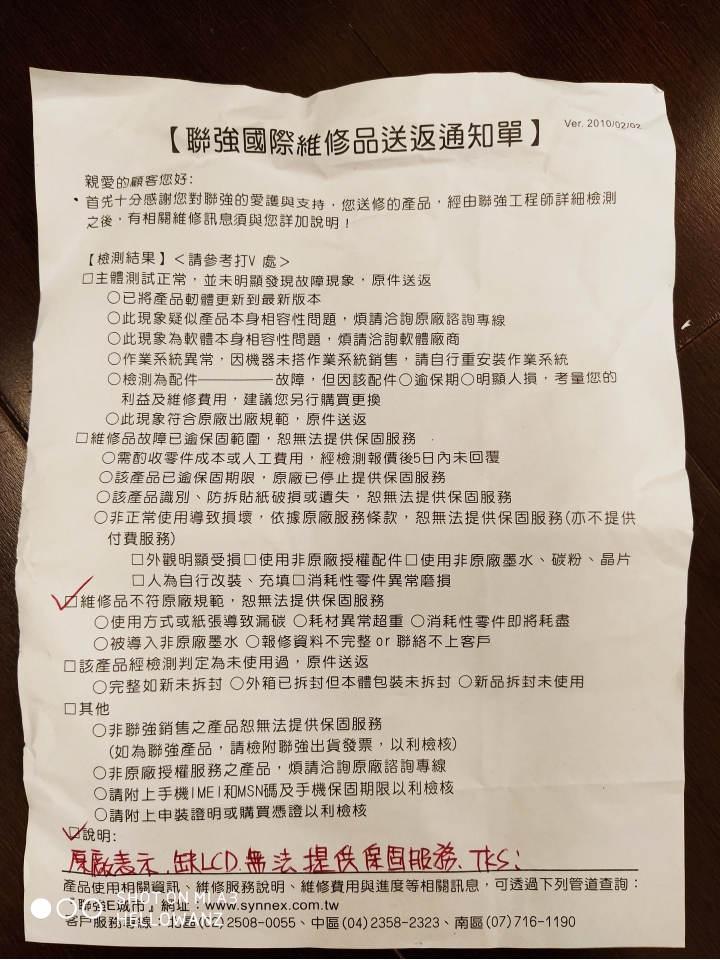 【聯強國際維修品送返通知單】
Ver. 2010/02/02
親愛的顧客您好:
首先十分感謝您對聯強的愛護與支持，您送修的產品，經由聯強工程師詳細檢測
之後，有相關維修訊息須與您詳加說明！
【檢測結果】＜請參考打V 處＞
□主體測試正常，並未明顯發現故障現象，原件送返
○已將產品韌體更新到最新版本
○此現象疑似產品本身相容性問題，煩請洽詢原廠諮詢專線
○此現象為軟體本身相容性問題，煩請洽詢軟體廠商
○作業系統異常，因機器未搭作業系統銷售，請自行重安裝作業系統
○檢測為配件—————故障，但因該配件○逾保期○明顯人損，考量您的
利益及維修費用，建議您另行購買更換
○此現象符合原廠出廠規範，原件送返
□維修品故障已逾保固範圍，恕無法提供保固服務
○需酌收零件成本或人工費用，經檢測報價後5日內未回覆
○該產品已逾保固期限，原廠已停止提供保固服務
○該產品識別、防拆貼紙破損或遺失，恕無法提供保固服務
○非正常使用導致損壞，依據原廠服務條款，恕無法提供保固服務(亦不提供
付費服務)
□外觀明顯受損□使用非原廠授權配件□使用非原廠墨水、碳粉、晶片
□人為自行改裝、充填□消耗性零件異常磨損
□維修品不符原廠規範，恕無法提供保固服務
○使用方式或紙張導致漏碳 ○耗材異常超重 ○消耗性零件即將耗盡
○被導入非原廠墨水 ○報修資料不完整 or 聯絡不上客戶
□該產品經檢測判定為未使用過，原件送返
○完整如新未拆封 ○外箱已拆封但本體包裝未拆封 ○新品拆封未使用
□其他
○非聯強銷售之產品恕無法提供保固服務
(如為聯強產品，請檢附聯強出貨發票，以利檢核)
○非原廠授權服務之產品，煩請洽詢原廠諮詢專線
○請附上手機IMEI和MSN碼及手機保固期限以利檢核
○請附上申裝證明或購買憑證以利檢核
□說明:
原廠表示.缺LCD.無法提供保固服務. TKS:
產品使用相關資訊、維修服務說明、維修費用與進度等相關訊息，可透過下列管道查詢：
聯強E城市」網址：www.synnex.com.tw
客戶服務專線：北區(02)2508-0055、中區(04)2358-2323、南區(07)716-1190
SHOT ON MI A3
HELLOWANZ